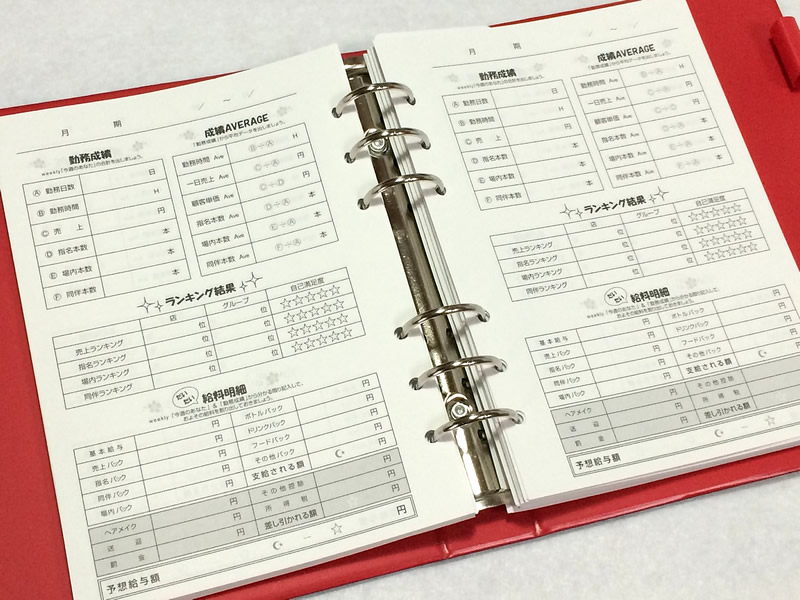 月 期 ／ ～ ／
勤務成績
weekly「今週のあなた」の合計を出しましょう。
Ⓐ 勤務日数 日
Ⓑ 勤務時間 H
Ⓒ 売 上 円
Ⓓ 指名本数 本
Ⓔ 場内本数 本
Ⓕ 同伴本数 本
成績AVERAGE
「勤務成績」から平均データを出しましょう。
勤務時間 Ave Ⓑ÷Ⓐ H
一日売上 Ave Ⓒ÷Ⓐ 円
顧客単価 Ave Ⓒ÷Ⓓ 円
指名本数 Ave Ⓓ÷Ⓐ 本
場内本数 Ave Ⓔ÷Ⓐ 本
同伴本数 Ave Ⓕ÷Ⓐ 本
ランキング結果
店 グループ 自己満足度
売上ランキング 位 位 ☆☆☆☆☆
指名ランキング 位 位 ☆☆☆☆☆
場内ランキング 位 位 ☆☆☆☆☆
同伴ランキング 位 位 ☆☆☆☆☆
だいたい 給料明細
weekly「今週のあなた」&「勤務成績」から分かる限り記入して、
おおよその給料を割り出しておきましょう。
基本給与 円 ボトルバック 円
売上バック 円 ドリンクバック 円
指名バック 円 フードバック 円
同伴バック 円 その他バック 円
場内バック 円 支給される額 ☪ 円
ヘアメイク 円 その他控除 円
送 迎 円 所 得 税 円
罰 金 円 差し引かれる額 ☆ 円
予想給与額 ☪ － ☆ 円
月 期 ／ ～ ／
勤務成績
weekly「今週のあなた」の合計を出しましょう。
Ⓐ 勤務日数 日
Ⓑ 勤務時間 H
Ⓒ 売 上 円
Ⓓ 指名本数 本
Ⓔ 場内本数 本
Ⓕ 同伴本数 本
成績AVERAGE
「勤務成績」から平均データを出しましょう。
勤務時間 Ave Ⓑ÷Ⓐ H
一日売上 Ave Ⓒ÷Ⓐ 円
顧客単価 Ave Ⓒ÷Ⓓ 円
指名本数 Ave Ⓓ÷Ⓐ 本
場内本数 Ave Ⓔ÷Ⓐ 本
同伴本数 Ave Ⓕ÷Ⓐ 本
ランキング結果
店 グループ 自己満足度
売上ランキング 位 位 ☆☆☆☆☆
指名ランキング 位 位 ☆☆☆☆☆
場内ランキング 位 位 ☆☆☆☆☆
同伴ランキング 位 位 ☆☆☆☆☆
だいたい 給料明細
weekly「今週のあなた」&「勤務成績」から分かる限り記入して、
おおよその給料を割り出しておきましょう。
基本給与 円 ボトルバック 円
売上バック 円 ドリンクバック 円
指名バック 円 フードバック 円
同伴バック 円 その他バック 円
場内バック 円 支給される額 ☪ 円
ヘアメイク 円 その他控除 円
送 迎 円 所 得 税 円
罰 金 円 差し引かれる額 ☆ 円
予想給与額 ☪ － ☆ 円